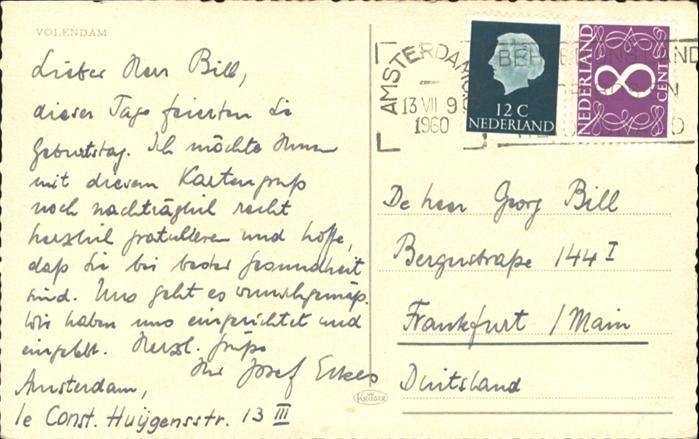 VOLENDAM
Lieber Herr Bill,
dieser Tage feierten Sie
Geburtstag. Ich möchte Ihnen
mit diesem Kartengruß
noch nachträglich recht
herzlich gratulieren und hoffe,
daß Sie bei bester Gesundheit
sind. Uns geht es wunschgemäß.
Wir haben uns eingerichtet und
eingelebt. Herzl. Grüße
Ihr Josef
Amsterdam,
1e Const. Huijgensstr. 13 III
AMSTERDAM
13 VII 9
1960
12 C
NEDERLAND
NEDERLAND
8
CENT
De heer Georg Bill
Bergerstraße 144 I
Frankfurt / Main
Duitsland